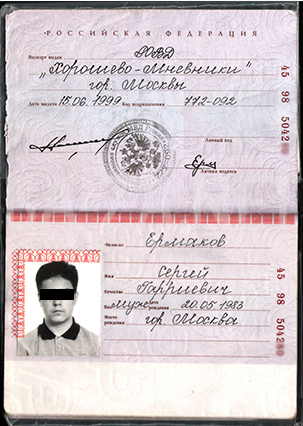 РОССИЙСКАЯ ФЕДЕРАЦИЯ
Паспорт выдан РОВД
„Хорошево-Мневники"
гор. Москвы
Дата выдачи 15.06.1999 Код подразделения 772-092
Личный код
Личная подпись
45 98 5042
Фамилия Ермаков
Имя Сергей
Отчество Гарриевич
муж Дата рождения 20.05.1983
Место рождения гор. Москва
45 98 5042